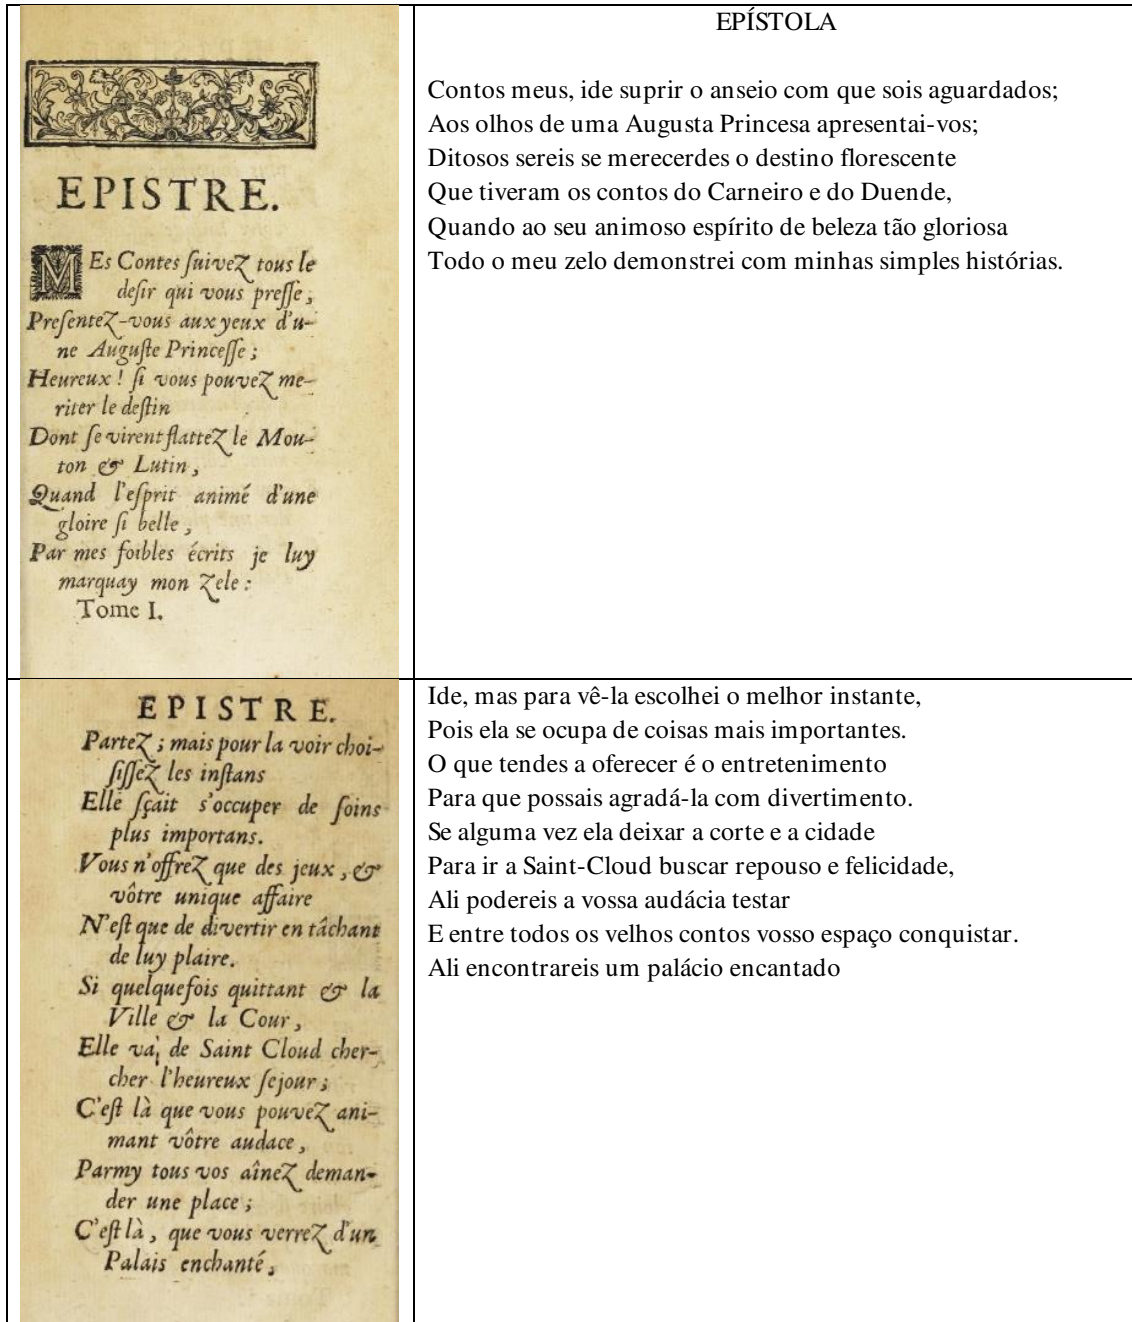 EPISTRE.
MEs Contes ſuivez tous le
deſir qui vous preſſe,
Preſentez-vous aux yeux d'u-
ne Auguſte Princeſſe;
Heureux! ſi vous pouvez me-
riter le deſtin
Dont ſe virent flattez le Mou-
ton & Lutin,
Quand l'eſprit animé d'une
gloire ſi belle,
Par mes foibles écrits je luy
marquay mon zele:
Tome I.
EPÍSTOLA
Contos meus, ide suprir o anseio com que sois aguardados;
Aos olhos de uma Augusta Princesa apresentai-vos;
Ditosos sereis se merecerdes o destino florescente
Que tiveram os contos do Carneiro e do Duende,
Quando ao seu animoso espírito de beleza tão gloriosa
Todo o meu zelo demonstrei com minhas simples histórias.
EPISTRE.
Partez; mais pour la voir choi-
ſiſſez les inſtans
Elle ſçait s'occuper de ſoins
plus importans.
Vous n'offrez que des jeux, &
vôtre unique affaire
N'eſt que de divertir en tâchant
de luy plaire.
Si quelquefois quittant & la
Ville & la Cour,
Elle va, de Saint Cloud cher-
cher l'heureux ſejour;
C'eſt là que vous pouvez ani-
mant vôtre audace,
Parmy tous vos aînez deman-
der une place;
C'eſt là, que vous verrez d'un
Palais enchanté,
Ide, mas para vê-la escolhei o melhor instante,
Pois ela se ocupa de coisas mais importantes.
O que tendes a oferecer é o entretenimento
Para que possais agradá-la com divertimento.
Se alguma vez ela deixar a corte e a cidade
Para ir a Saint-Cloud buscar repouso e felicidade,
Ali podereis a vossa audácia testar
E entre todos os velhos contos vosso espaço conquistar.
Ali encontrareis um palácio encantado